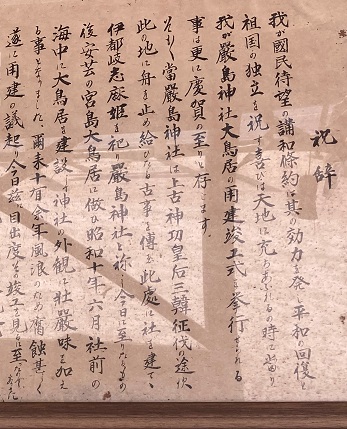 祝辞
我が國民待望の講和條約は其の効力を発し平和の回復と
祖国の独立を祝す喜びは天地に充ちあふれるの時に当り
我が嚴島神社大鳥居の再建竣工式を挙行せられる
事は更に慶賀の至りと存じます。
そもそも当嚴島神社は上古神功皇后三韓征伐の途次
此の地に舟を止め給ひたる古事を傳え此處に社を建て、
伊都岐志麻姫を祀り嚴島神社と称し今日に至りたるもの
後安芸の宮島大鳥居に倣ひ昭和十年六月社前の
海中に大鳥居を建設し神社の外観に壮嚴味を加え
る事となりました。爾来十有余年風浪のため腐蝕甚しく
遂に再建の議起り今日茲に目出度その竣工を見るに至